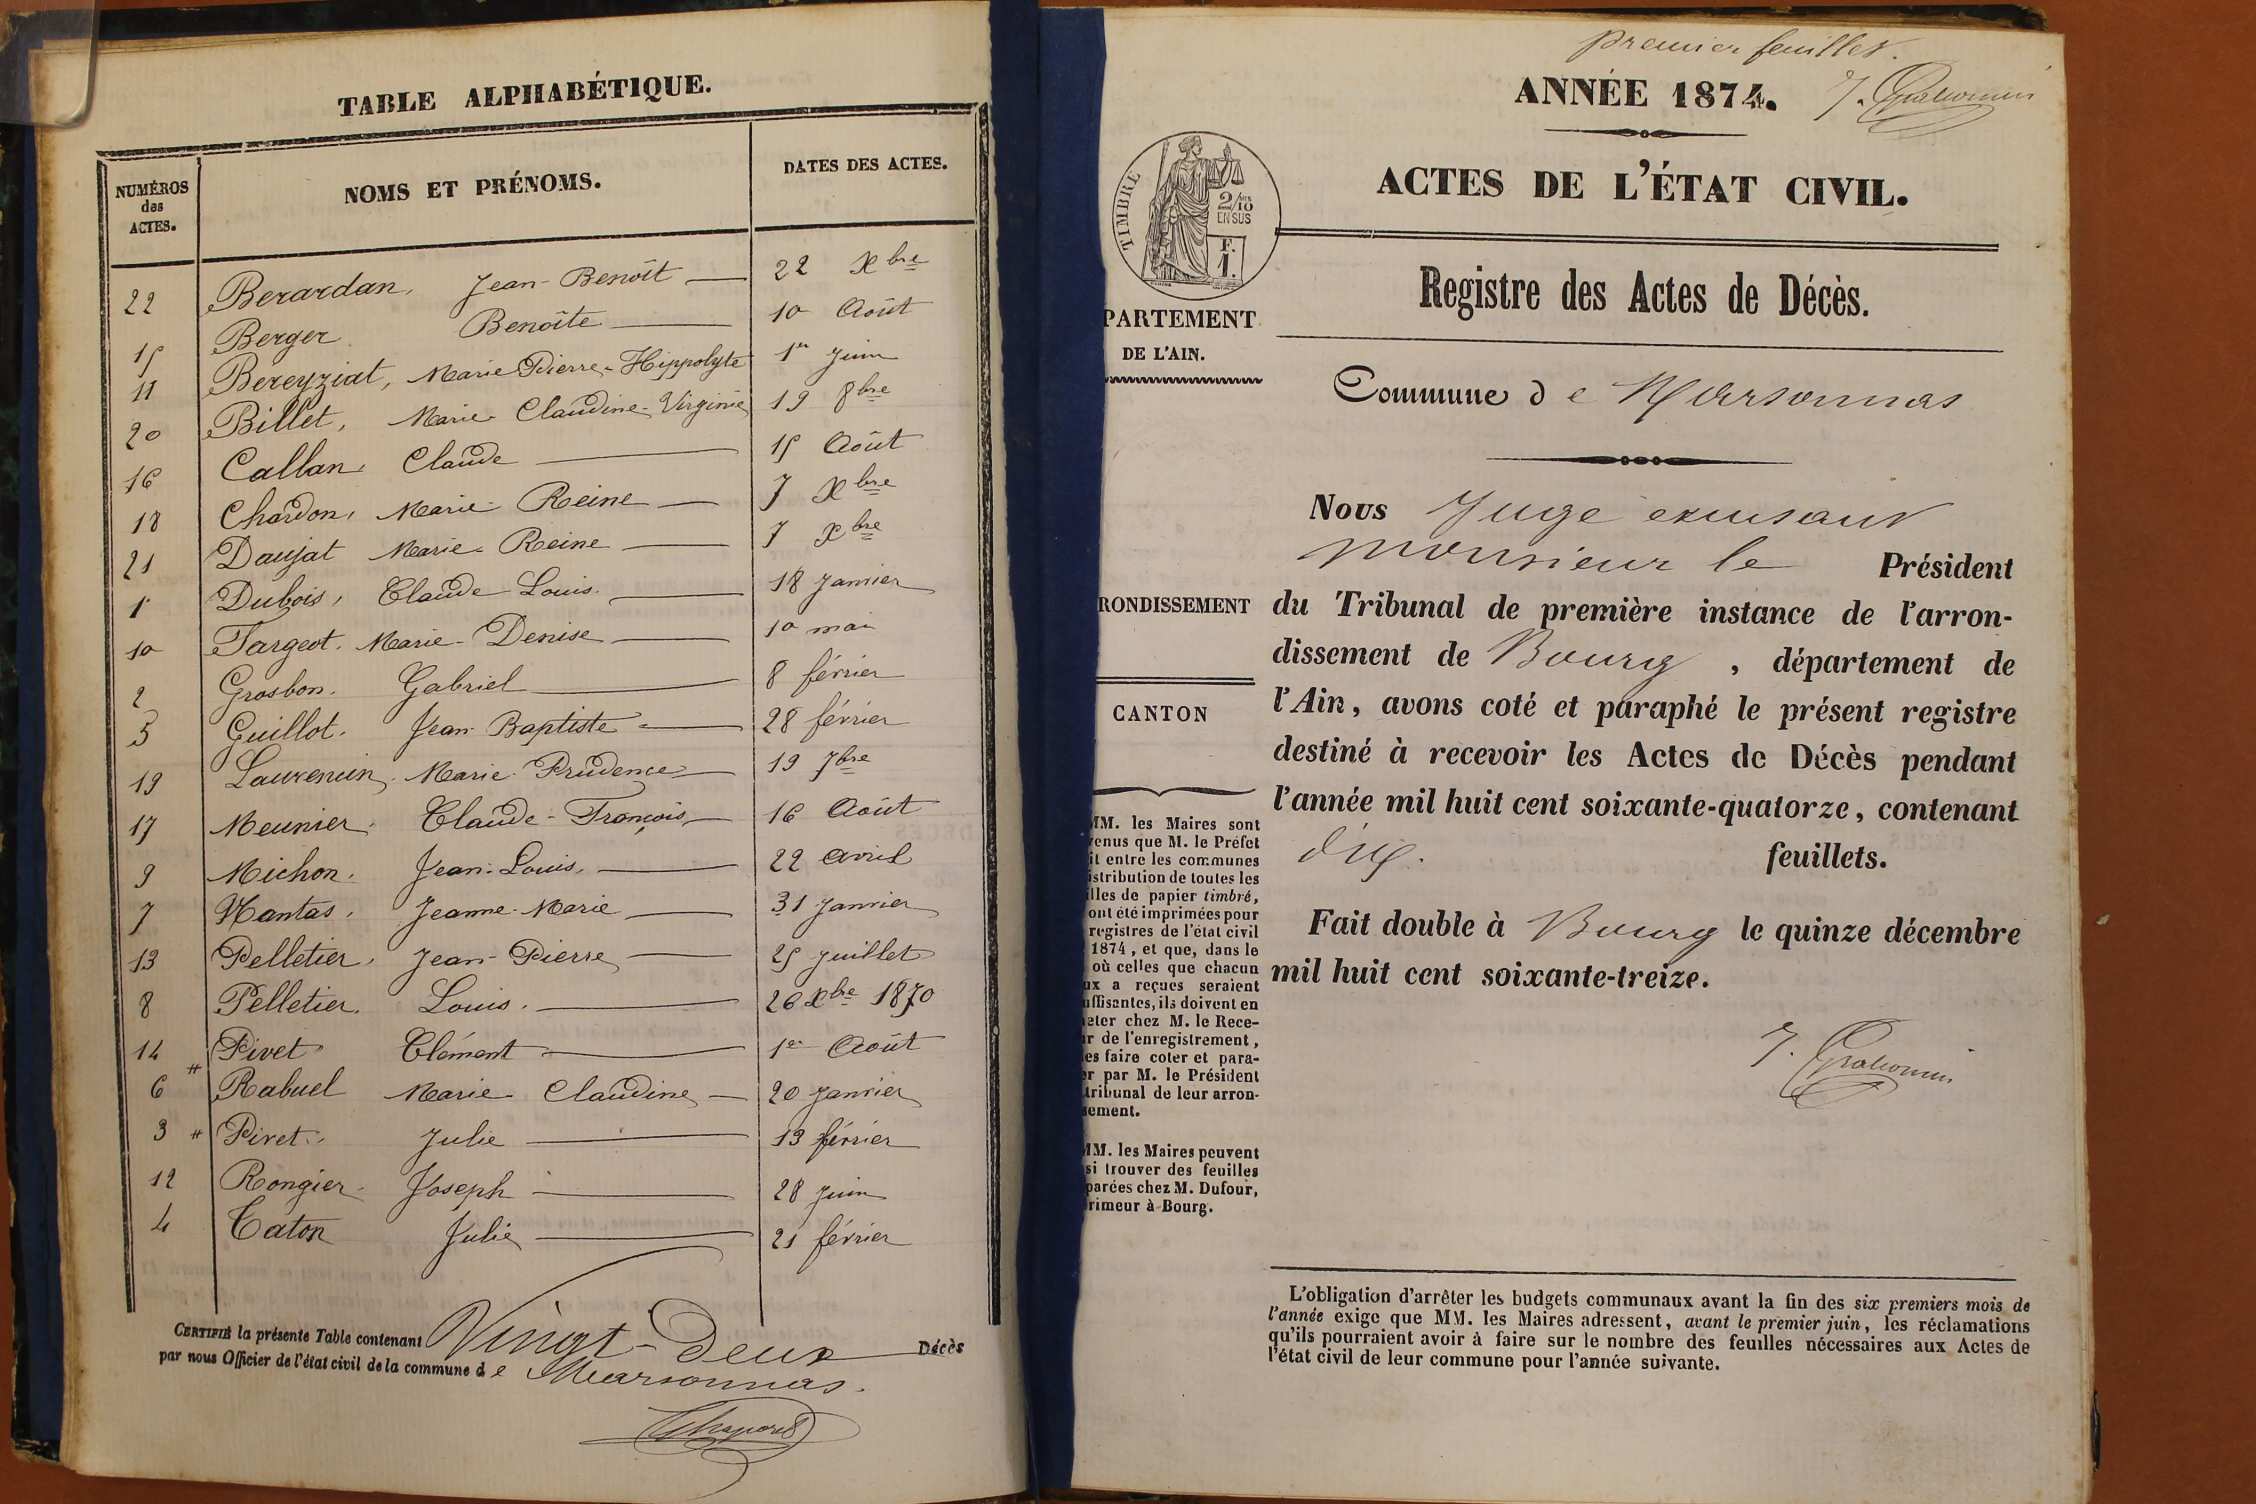 TABLE ALPHABÉTIQUE.
NUMÉROS des ACTES. NOMS ET PRÉNOMS. DATES DES ACTES.
22 Berardan, Jean-Benoît 22 Xbre
15 Berger Benoîte 10 Août
11 Bereyziat, Marie Pierre-Hippolyte 1er Juin
20 Billet, Marie Claudine-Virginie 19 8bre
16 Callan, Claude 15 Août
18 Chardon, Marie Reine 7 Xbre
21 Daujat Marie Reine 7 Xbre
1 Dubois, Claude Louis 18 Janvier
10 Fargeot. Marie-Denise 10 mai
2 Grosbon. Gabriel 8 février
5 Guillot. Jean Baptiste 28 février
19 Laurencin. Marie Prudence 19 7bre
17 Meunier. Claude-François 16 Août
9 Michon. Jean-Louis. 22 avril
7 Nantas, Jeanne-Marie 31 Janvier
13 Pelletier, Jean-Pierre 25 Juillet
8 Pelletier. Louis. 26 Xbre 1870
14 Pivet Clément 1er Août
6 # Rabuel Marie Claudine 20 Janvier
3 # Pivet Julie 13 février
12 Rongier Joseph 28 Juin
4 Caton Julie 21 février
CERTIFIÉ la présente Table contenant Vingt-Deux Décès
par nous Officier de l'état civil de la commune de Marsonnas.
premier feuillet.
ANNÉE 1874.
ACTES DE L'ÉTAT CIVIL.
TIMBRE
2/10
EN SUS
F.
1.
Registre des Actes de Décès.
PARTEMENT
DE L'AIN.
Commune de Marsonnas
Nous Juge excusant
monsieur le Président
RONDISSEMENT
du Tribunal de première instance de l'arron-
dissement de Bourg, département de
l'Ain, avons coté et paraphé le présent registre
destiné à recevoir les Actes de Décès pendant
l'année mil huit cent soixante-quatorze, contenant
dix. feuillets.
Fait double à Bourg le quinze décembre
mil huit cent soixante-treize.
CANTON
MM. les Maires sont
venus que M. le Préfet
it entre les communes
istribution de toutes les
illes de papier timbré,
ont été imprimées pour
registres de l'état civil
1874, et que, dans le
où celles que chacun
ux a reçues seraient
uffisantes, ils doivent en
eter chez M. le Rece-
r de l'enregistrement,
es faire coter et para-
er par M. le Président
tribunal de leur arron-
sement.
MM. les Maires peuvent
si trouver des feuilles
parées chez M. Dufour,
rimeur à Bourg.
L'obligation d'arrêter les budgets communaux avant la fin des six premiers mois de
l'année exige que MM. les Maires adressent, avant le premier juin, les réclamations
qu'ils pourraient avoir à faire sur le nombre des feuilles nécessaires aux Actes de
l'état civil de leur commune pour l'année suivante.